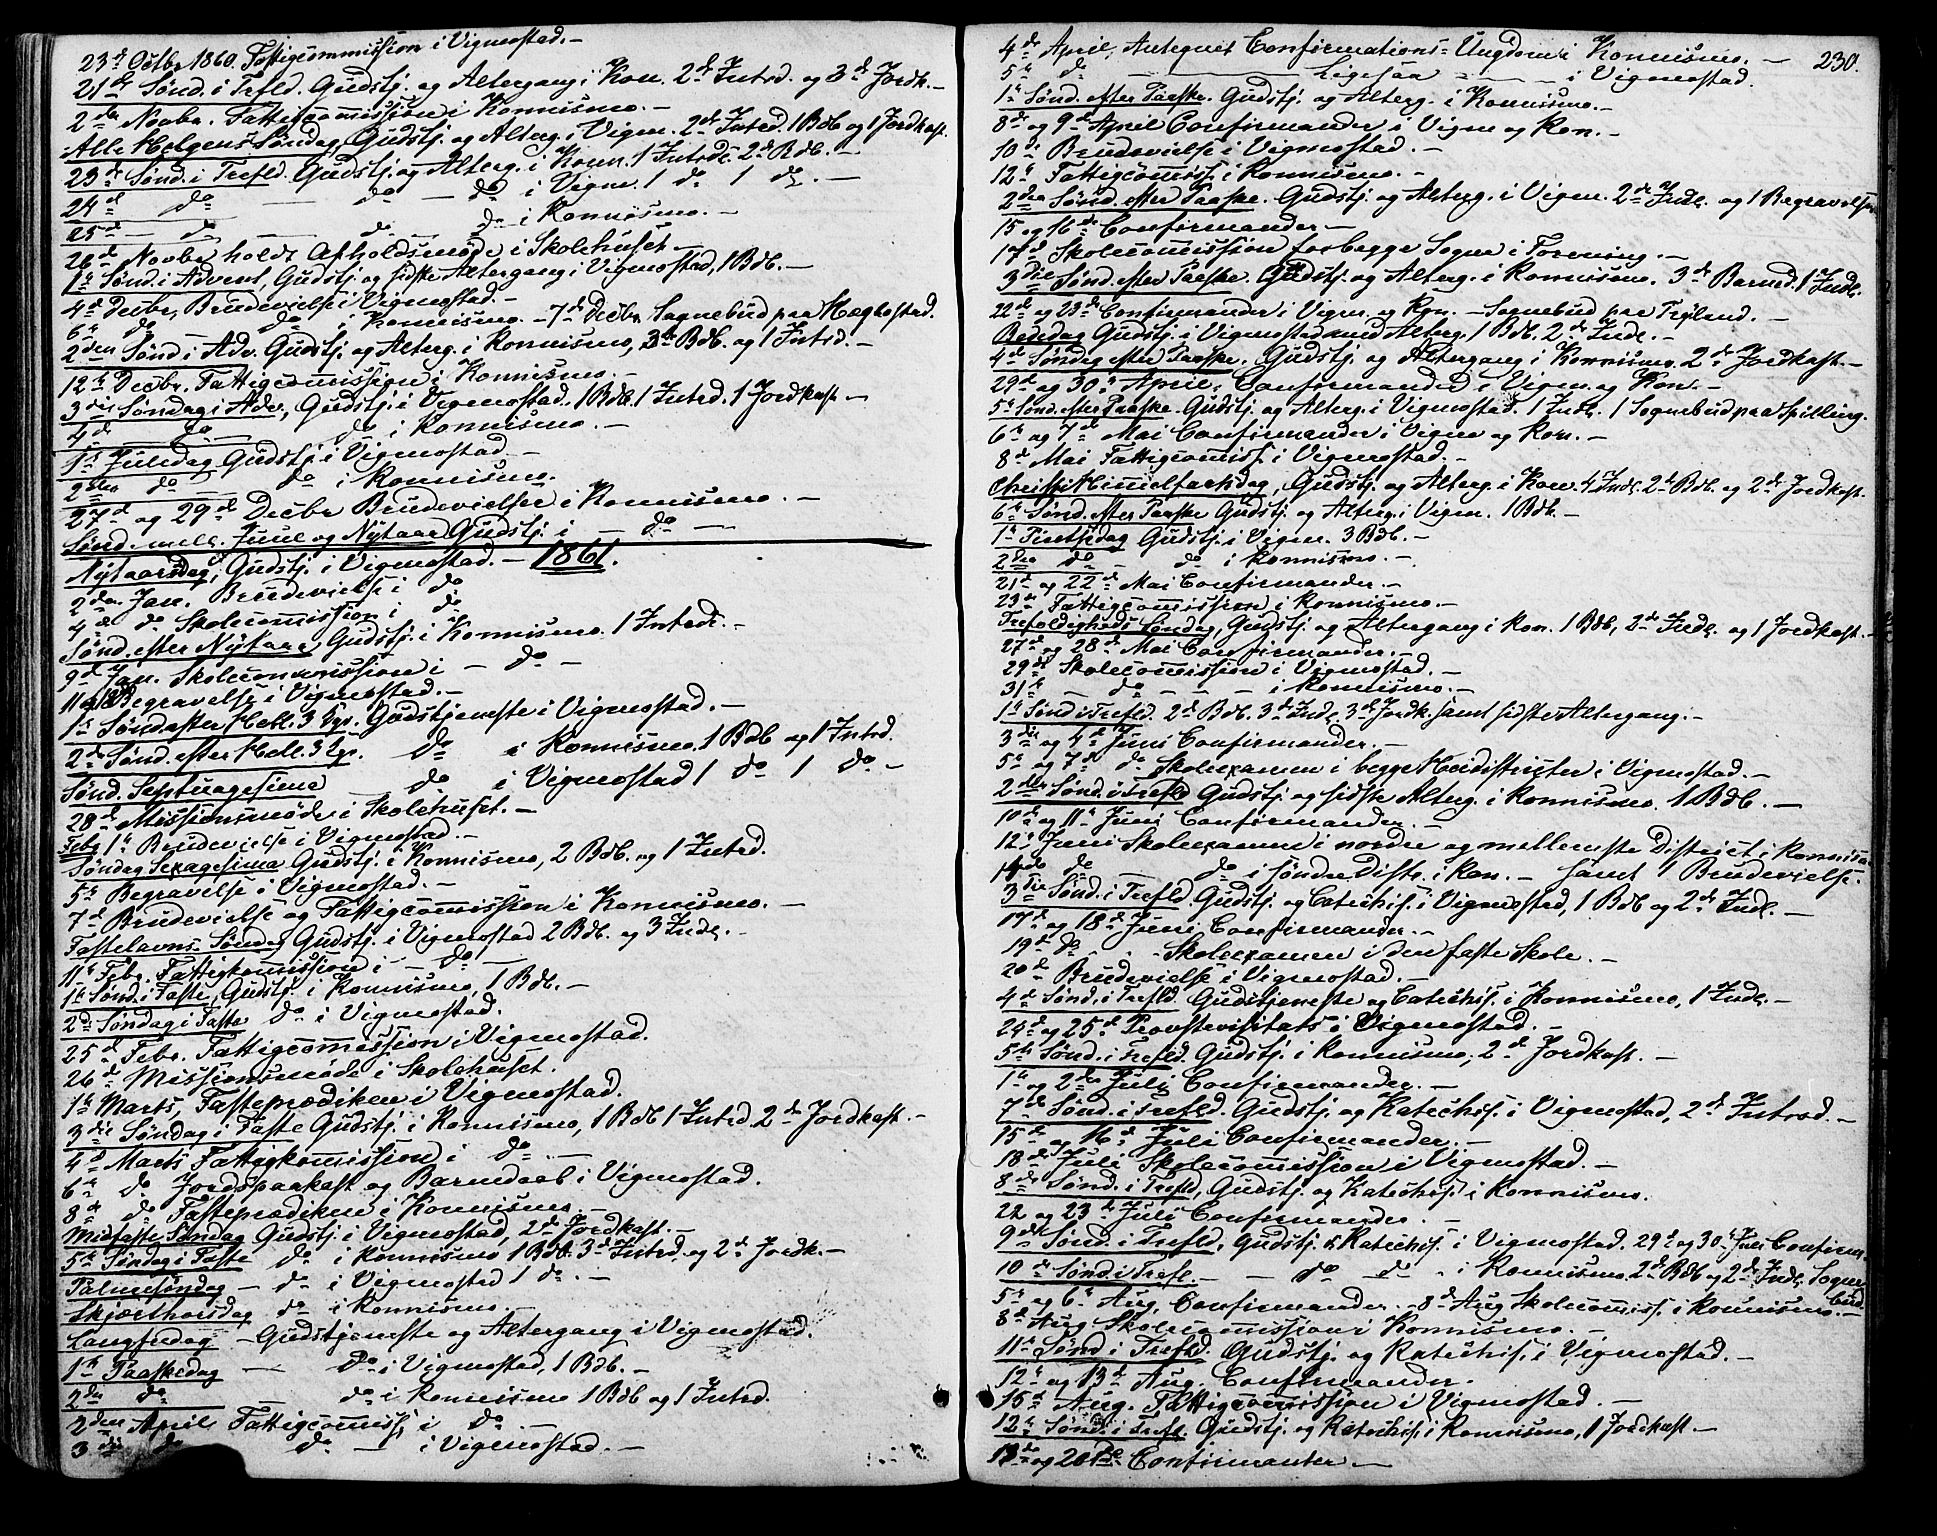 23d Octbr 1860. Fattigcommission i Vigmostad. –
21de Sønd. i Trefld. Gudstj. og Altergang i Kon. 2de Introd. og 3de Jordk. –
2den Novbr. Fattigcomission i Konnismo. –
Alle Helgens Søndag, Gudstj. og Alterg. i Vigm. 2de Introd. 1 Bdb og 1 Jordkast.
23de Sønd. i Trefld. Gudstj. og Alterg. i Konn. 1 Introd. 2de Bdb. –
24d do — do — do i Vigm. 1 do 1 do. –
25d do — do — do i Konnismo. –
26de Novbr holdt Afholdsmøde i Skolehuset –
1te Sønd. i Advent, Gudstj. og sidste Altergang i Vigmostad, 1 Bdb. –
4de Decbr, Brudevielse i Vigmostad. –
6te do do i Konnismo. – 7de Decbr Sognebud paa Hægbostad.
2den Sønd i Adv. Gudstj. og Alterg. i Konnismo, 3de Bdb. og 1 Introd. –
12te Decbr. Fattigcomission i Konnismo. –
3die Søndag i Adv, Gudstj. i Vigmostad. 1 Bdb. 1 Introd. 1 Jordkast –
4de do do i Konnismo. –
1te Juledag Gudstj. i Vigmostad. –
2den do do i Konnismo.
27d og 29de Decbr Brudevielser i Konnismo. –
Sønd. mell. Juul og Nytaar Gudstj. i — do —
Nytaarsdag, Gudstj. i Vigmostad. – 1861.
2den Jan. Brudevielse i do
4de do Skolecomission i do
Sønd. efter Nytaar Gudstj. i Konnismo. 1 Introd. –
9de Jan. Skolecommission i – do –
11te Begravelse i Vigmostad. –
1te Sønd. efter Hell. 3 Kgr. Gudstjeneste i Vigmostad. –
2de Sønd. efter Hell. 3 Kgr. do i Konnismo. 1 Bdb og 1 Introd.
Sønd. Septuagesima do i Vigmostad 1 do 1 do –
28de Missionsmøde i Skolehuset. –
Febr 1te Brudevielse i Vigmostad. –
Søndag Sexagesima Gudstj. i Konnismo, 2 Bdb. og 1 Introd.
5te Begravelse i Vigmostad. –
7de Brudevielse og Fattigcomission i Konnismo. –
Fastelavns Søndag Gudstj. i Vigmostad 2 Bdb. og 3 Indl. –
11te Febr. Fattigkomission i – do –
1te Sønd. i Faste, Gudstj. i Konnismo, 1 Bdb. –
2d Søndag i Faste do i Vigmostad.
25de Febr. Fattigcomission i Vigmostad.
26de Missionsmøde i Skolehuset.
1te Marts, Fasteprædiken i Vigmostad.
3die Søndag i Faste Gudstj. i Konnismo, 1 Bdb 1 Introd 2de Jordkast. –
4d Marts Fattigkomission i do. –
6te do Jordspaakast og Barnedaab i Vigmostad.
8de do Fasteprædiken i Konnismo. –
Midfaste Søndag Gudstj. i Vigmostad, 2de Jordkast. –
5te Søndag i Faste do i Konnismo 1 Bdb. 3de Introd. og 2de Jordk. –
Palmesøndag – do i Vigmostad 1 do. –
Skjærthorsdag do i Konnismo. –
Langfredag – Gudstjeneste og Altergang i Vigmostad.
1te Paaskedag — do i Vigmostad, 1 Bdb. –
2den do — do i Konnismo 1 Bdb og 1 Introd.
2den April Fattigcomiss. i do. –
3die do do — i Vigmostad. –
230.
4de April, Antegnet Confirmations-Ungdom i Konnismo. –
5te do — Ligesaa — i Vigmostad.
1te Sønd. efter Paaske. Gudstj. og Alterg. i Konnismo. –
8de og 9de April Confirmander i Vigm og Kon. –
10de Brudevielse i Vigmostad. –
12te Fattigcomiss. i Konnismo. –
2den Sønd. efter Paaske. Gudstj. og Alterg. i Vigm. 2de Indl. og 1 Begravelse
15 og 16de Confirmander –
17de Skolecomission for begge Sogne i Forening. –
3die Sønd. efter Paaske. Gudstj. og Alterg. i Konnismo. 3de Barned. 1 Indl.
22de og 23de Confirmander i Vigm. og Kon. – Sognebud paa Tryland. –
Bededag Gudstj. i Vigmostad med Alterg. 1 Bdb. 2de Indl. –
4de Søndag efter Paaske, Gudstj. og Altergang i Konnismo. 2de Jordkast. –
29de og 30te April, Confirmander i Vigm. og Kon. –
5te Sønd. efter Paaske. Gudstj. og Alterg. i Vigmostad. 1 Indl. 1 Sognebud paa Spilling.
6te og 7de Mai Confirmander i Vigm og Kon. –
8de Mai Fattigcomiss. i Vigmostad. –
Christi Himmelfartsdag, Gudstj. og Alterg. i Kon. 4 Indl. 2de Bdb. og 2de Jordkast.
6te Sønd. efter Paaske Gudstj. og Alterg. i Vigm. 1 Bdb. –
1te Pintsedag Gudstj. i Vigm. 3 Bdb. –
2den do – do i Konnismo. –
21de og 22de Mai Confirmander. –
23de Fattigcomission i Konnismo. –
Trefoldigheds Søndag, Gudstj. og Altergang i Kon. 1 Bdb, 2de Indl. og 1 Jordkast. –
27de og 28de Mai Confirmander. –
29de Skolecomission i Vigmostad. –
31te — do — — i Konnismo. –
1te Sønd i Trefld. 2de Bdb. 3de Indl. 3de Jordk. samt sidste Altergang. –
3die og 4de Juni Confirmander. –
5te og 7de do Skoleexamen i begge Herdistricter i Vigmostad. –
2den Sønd. i Trefld Gudstj. og sidste Alterg. i Konnismo. 1 Bdb. –
10de og 11te Juni Confirmander. –
12te Juni Skoleexamen i nordre og mellemste District i Konnismo
14de do do i søndre Distr. i Kon. – samt 1 Brudevielse.
3die Sønd. i Trefld. Gudstj. og Catechis. i Vigmostad, 1 Bdb og 2de Indl. –
17de og 18de Juni Confirmander. –
19de do. – Skoleexamen i den faste Skole. –
20de Brudevielse i Vigmostad. –
4de Sønd. i Trefld. Gudstjeneste og Catechis. i Konnismo, 1 Indl. –
24de og 25de Provstevisitats i Vigmostad. –
5te Sønd. i Trefld. Gudstj. i Konnismo. 2de Jordkast. –
1te og 2den Juli Confirmander. –
7de Sønd. i Trefld. Gudstj. og Katechis. i Vigmostad, 2de Introd. –
15de og 16de Juli Confirmander. –
18de Juli Skolecomission i Vigmostad. –
8de Sønd. i Trefld, Gudstj. og Katechis. i Konnismo.
22 og 23de Juli Confirmander. –
9de Sønd. i Trefld, Gudstj. & Katechis. i Vigmostad. 29de og 30te Juli Confirm.
10de Sønd. i Trefl. – — do do – i Konnismo. 2de Bdb og 2de Indl. Sognebud
5te og 6te Aug, Confirmander. – 8de Aug Skolecomiss. i Konnismo –
8de Aug Skolecomission i Konnismo. –
11te Sønd i Trefld. Gudstj. og Katechis. i Vigmostad. –
12te og 13de Aug. Confirmander.
15de Aug. Fattigcomission i Vigmostad. –
12te Sønd. i Trefl. Gudstj. og Katechis. i Konnismo, 1 Jordkast –
19de og 20de Confirmanter. –